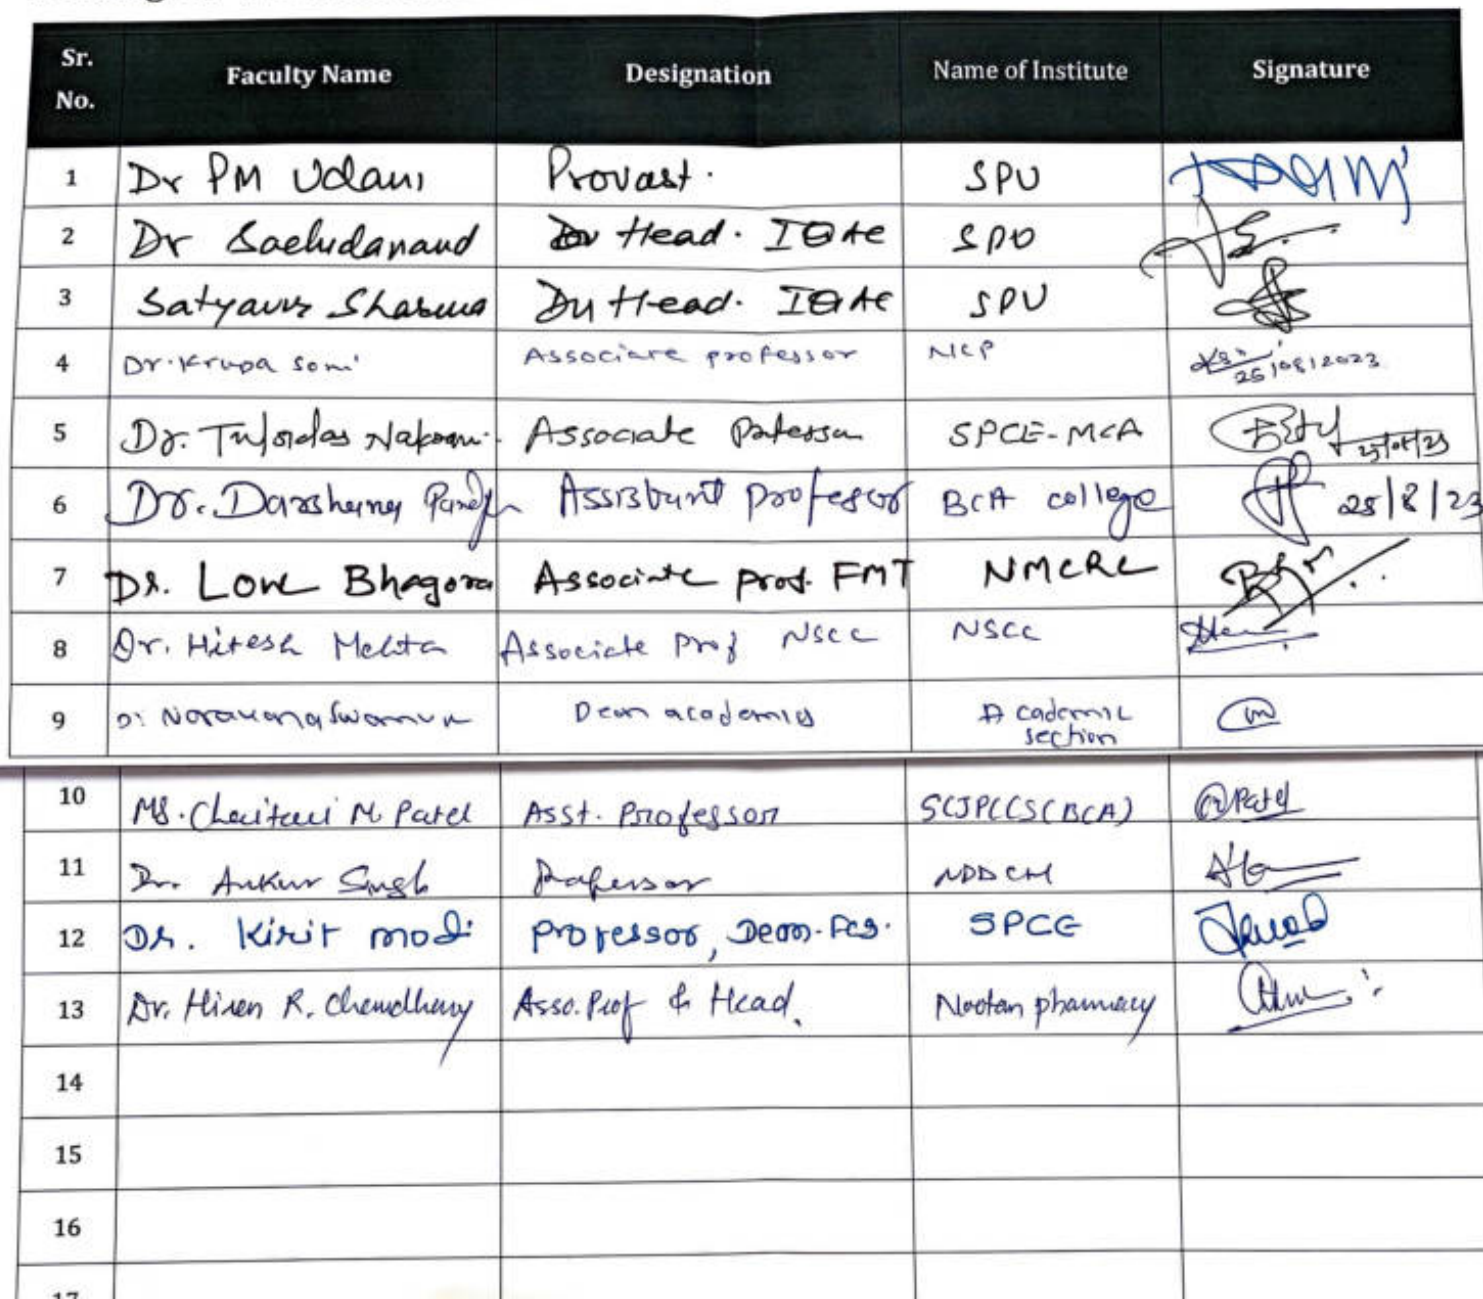 Sr. No. Faculty Name Designation Name of Institute Signature
1 Dr PM Udani Provast. SPU
2 Dr Sachidanand Head. IQAC SPU
3 Satyavir Sharma Dy Head. IQAC SPU
4 Dr. Krupa Soni Associate professor NCP 25/08/2023
5 Dr. Associate SPCE-MCA 25/08/23
6 Dr. Darshana Assistant professor BCA college 25/8/23
7 Dr. Love Bhagora Associate prof. FMT NMCRC
8 Dr. Hitesh Mehta Associate Prof NSCC NSCC
9 Dean academics Academic section
10 Ms. Chaitali M. Patel Asst. Professor SCJPCCS(BCA) Patel
11 Dr. Ankur Singh Professor NDDCH
12 Dr. Kirit modi professor, SPCE
13 Dr. Hiren R. Chaudhary Asso. Prof & Head. Nootan pharmacy
14
15
16
17